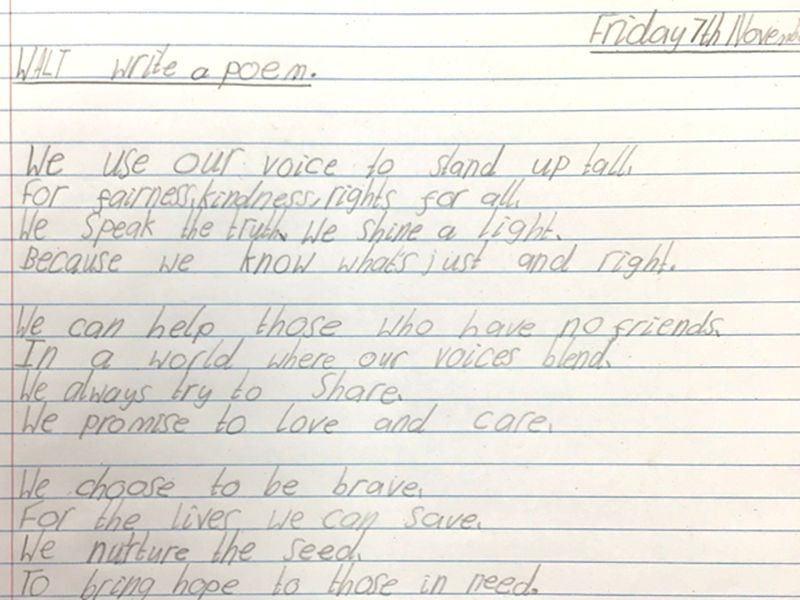 Friday 7th Novemb
WALT write a poem.
We use our voice to stand up tall,
For fairness, kindness, rights for all,
We speak the truth, We shine a light.
Because we know what's just and right.
We can help those who have no friends.
In a world where our voices blend.
We always try to share.
We promise to love and care.
We choose to be brave,
For the lives we can save.
We nurture the seed,
To bring hope to those in need.